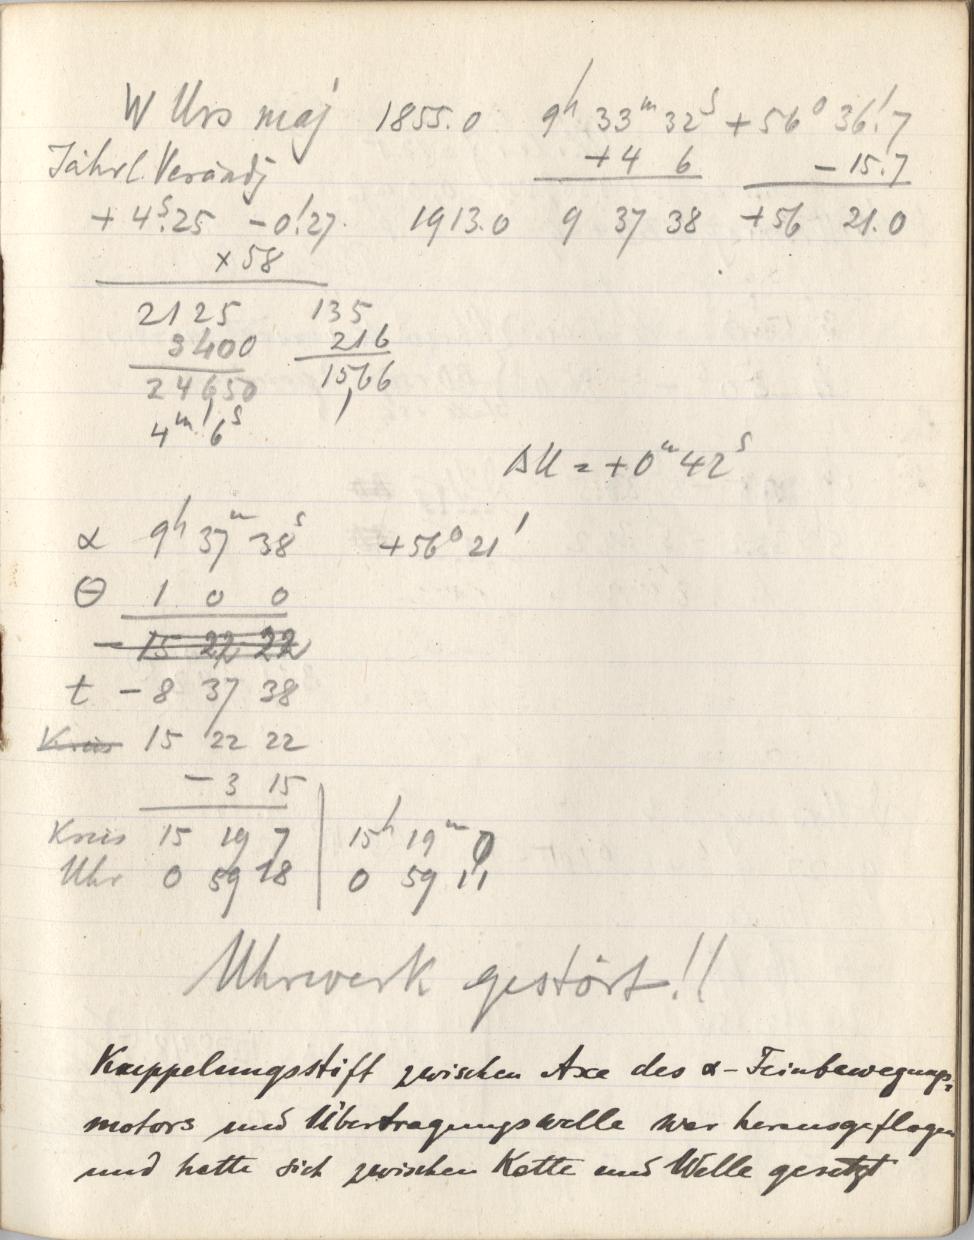 W Urs maj 1855.0 9h 33m 32s +56° 36!7
Jährl. Verändg +4 6 -15.7
+ 4s.25 -0!27. 1913.0 9 37 38 +56 21.0
x 58
2125 135
3400 216
24650 1566
4m 6s
ΔU = +0m 42s
α 9h 37m 38s +56° 21'
Θ 1 0 0
- 15 22 22
t - 8 37 38
Kreis 15 22 22
- 3 15
Kreis 15 19 7 15h 19m 0
Uhr 0 59 18 0 59 11
Uhrwerk gestört!!
Kuppelungsstift zwischen Axe des α-Feinbewegungs-
motors und Übertragungswelle war herausgeflogen
und hatte sich zwischen Kette und Welle gesetzt